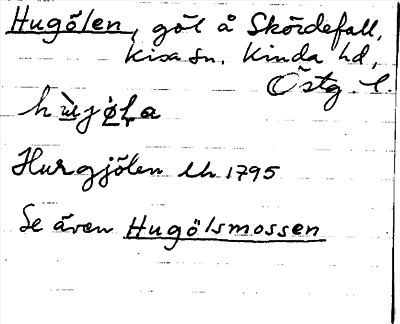 Hugölen, göl å Skördefall,
Kisa sn. Kinda hd,
Östg. l.
Hurgjölen Lh 1795
Se även Hugölsmossen